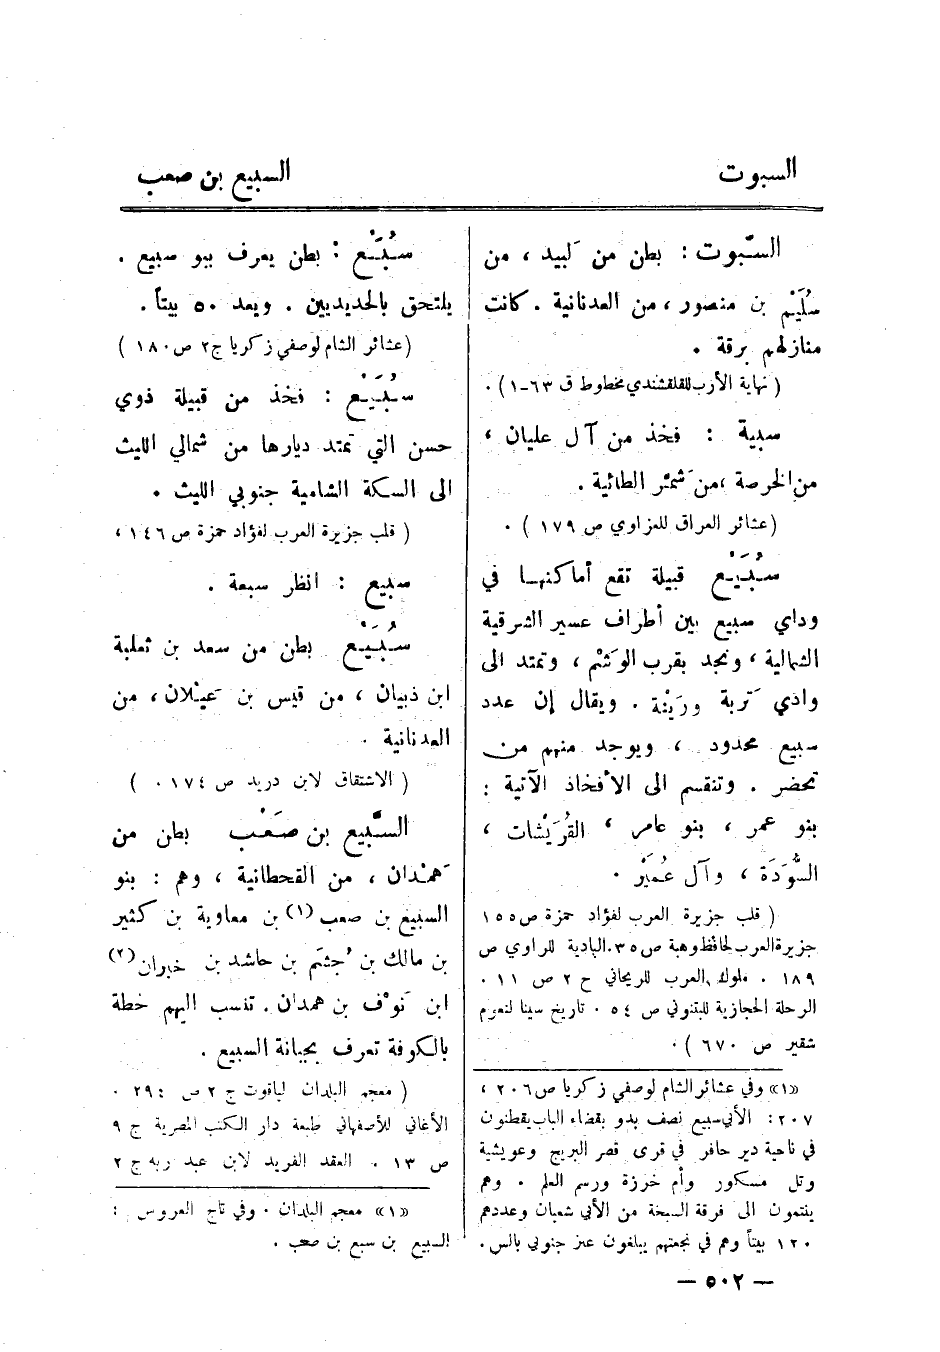 السبوت
السبيع بن صعب
السَّبوت : بطن من لَبيد ، من
سُلَيْم بن منصور ، من العدنانية . كانت
منازلهم برقة .
( نهاية الأرب للقلقشندي مخطوط ق ٦٣-١ ) .
سبية : فخذ من آل عليان ،
من الخرصة ، من شمَّر الطائية .
( عشائر العراق للعزاوي ص ١٧٩ ) .
سُبَيْع قبيلة تقع أماكنها في
وداي سبيع بين أطراف عسير الشرقية
الشمالية ، ونجد بقرب الوَشْم ، وتمتد الى
وادي تَربة ورَنْية . ويقال إن عدد
سبيع محدود ، ويوجد منهم من
تحضر . وتنقسم الى الأفخاذ الآتية :
بنو عمر ، بنو عامر ، القُرَيْشات ،
السُّوَدَة ، وآل عُمَيْر .
( قلب جزيرة العرب لفؤاد حمزة ص ١٥٥
جزيرة العرب لحافظ وهبة ص ٣٥ . البادية للراوي ص
١٨٩ . ملوك العرب للريحاني ج ٢ ص ١١ .
الرحلة الحجازية للبتنوني ص ٥٤ . تاريخ سينا لنعوم
شقير ص ٦٧٠ ) .
«١» وفي عشائر الشام لوصفي زكريا ص ٢٠٦ ،
٢٠٧ : الأبي سبيع نصف بدو بقضاء الباب يقطنون
في ناحية دير حافر في قرى قصر البريج وعويشية
وتل مسكور وأم خرزة ورسم العلم . وهم
ينتمون الى فرقة السبخة من الأبي شعبان وعددهم
١٢٠ بيتاً وهم في نجعتهم يبلغون عنز جنوبي بالس .
سُبَيْع : بطن يعرف ببو سبيع .
يلتحق بالحديديين . ويعد ٥٠ بيتاً .
( عشائر الشام لوصفي زكريا ج٢ ص ١٨٠ )
سُبَيْع : فخذ من قبيلة ذوي
حسن التي تمتد ديارها من شمالي الليث
الى السكة الشامية جنوبي الليث .
( قلب جزيرة العرب لفؤاد حمزة ص ١٤٦ ،
سبيع : انظر سبعة .
سُبَيْع بطن من سعد بن ثعلبة
ابن ذبيان ، من قيس بن عَيْلان ، من
العدنانية .
( الاشتقاق لابن دريد ص ١٧٤ . )
السَّبيع بن صَعْب بطن من
هَمْدان ، من القحطانية ، وهم : بنو
السبيع بن صعب (١) بن معاوية بن كثير
بن مالك بن جُشَم بن حاشد بن خيران (٢)
ابن نَوْف بن همدان . تنسب اليهم خطة
بالكوفة تعرف بجبانة السبيع .
( معجم البلدان لياقوت ج ٢ ص ٢٩ : .
الأغاني للأصفهاني طبعة دار الكتب المصرية ج ٩
ص ١٣ . العقد الفريد لابن عبد ربه ج ٢
«١» معجم البلدان . وفي تاج العروس :
السبيع بن سبع بن صعب .
— ٥٠٢ —